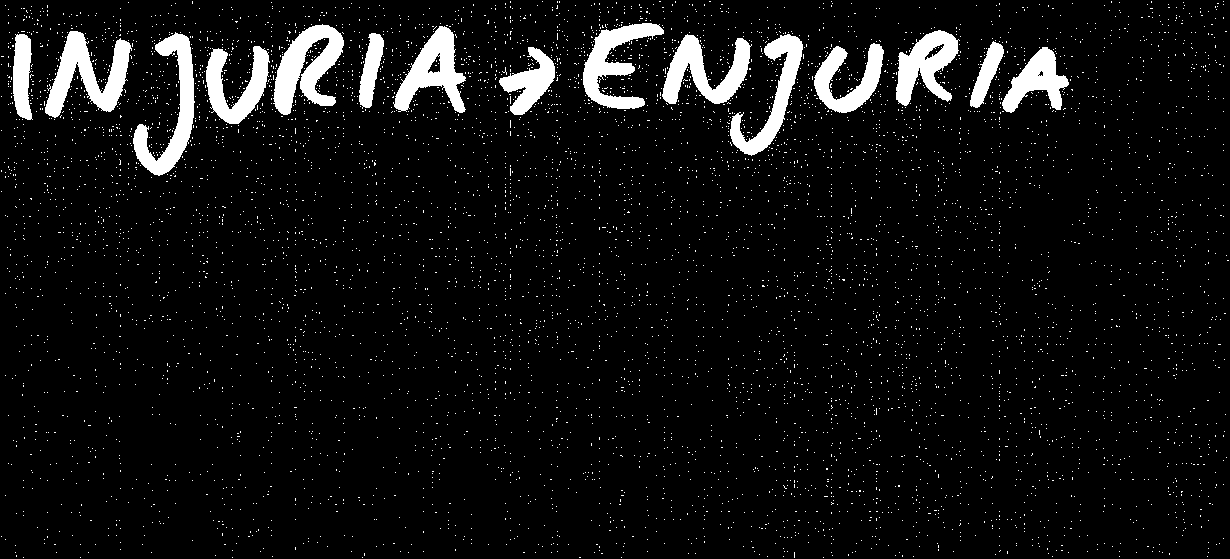 INJURIA → ENJURIA